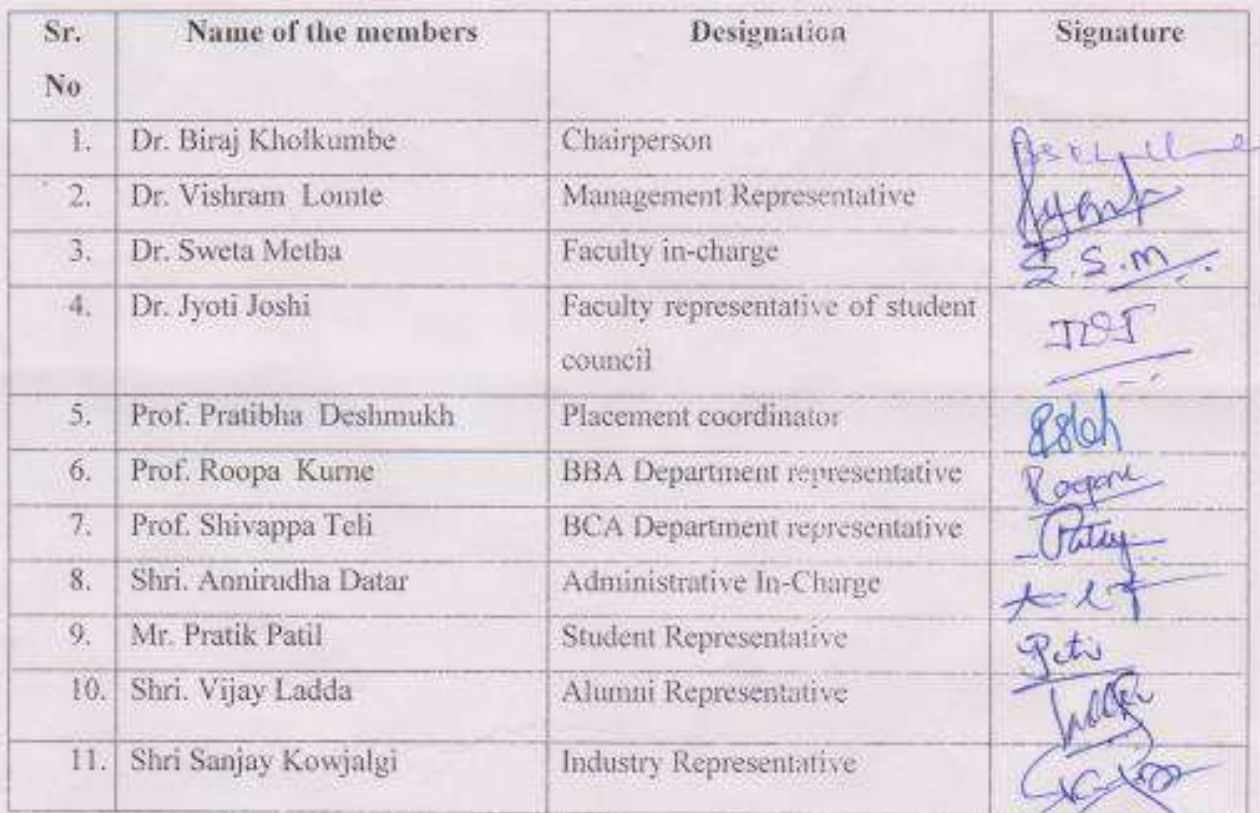 Sr. No Name of the members Designation Signature
1. Dr. Biraj Kholkumbe Chairperson
2. Dr. Vishram Lomte Management Representative
3. Dr. Sweta Metha Faculty in-charge S.S.M
4. Dr. Jyoti Joshi Faculty representative of student
council
5. Prof. Pratibha Deshmukh Placement coordinator
6. Prof. Roopa Kurne BBA Department representative
7. Prof. Shivappa Teli BCA Department representative
8. Shri. Annirudha Datar Administrative In-Charge
9. Mr. Pratik Patil Student Representative
10. Shri. Vijay Ladda Alumni Representative
11. Shri Sanjay Kowjalgi Industry Representative